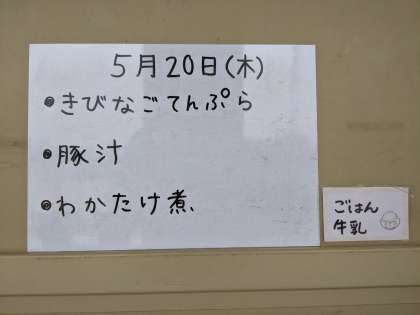 5月20日(木)
・きびなごてんぷら
・豚汁
・わかたけ煮
ごはん
牛乳